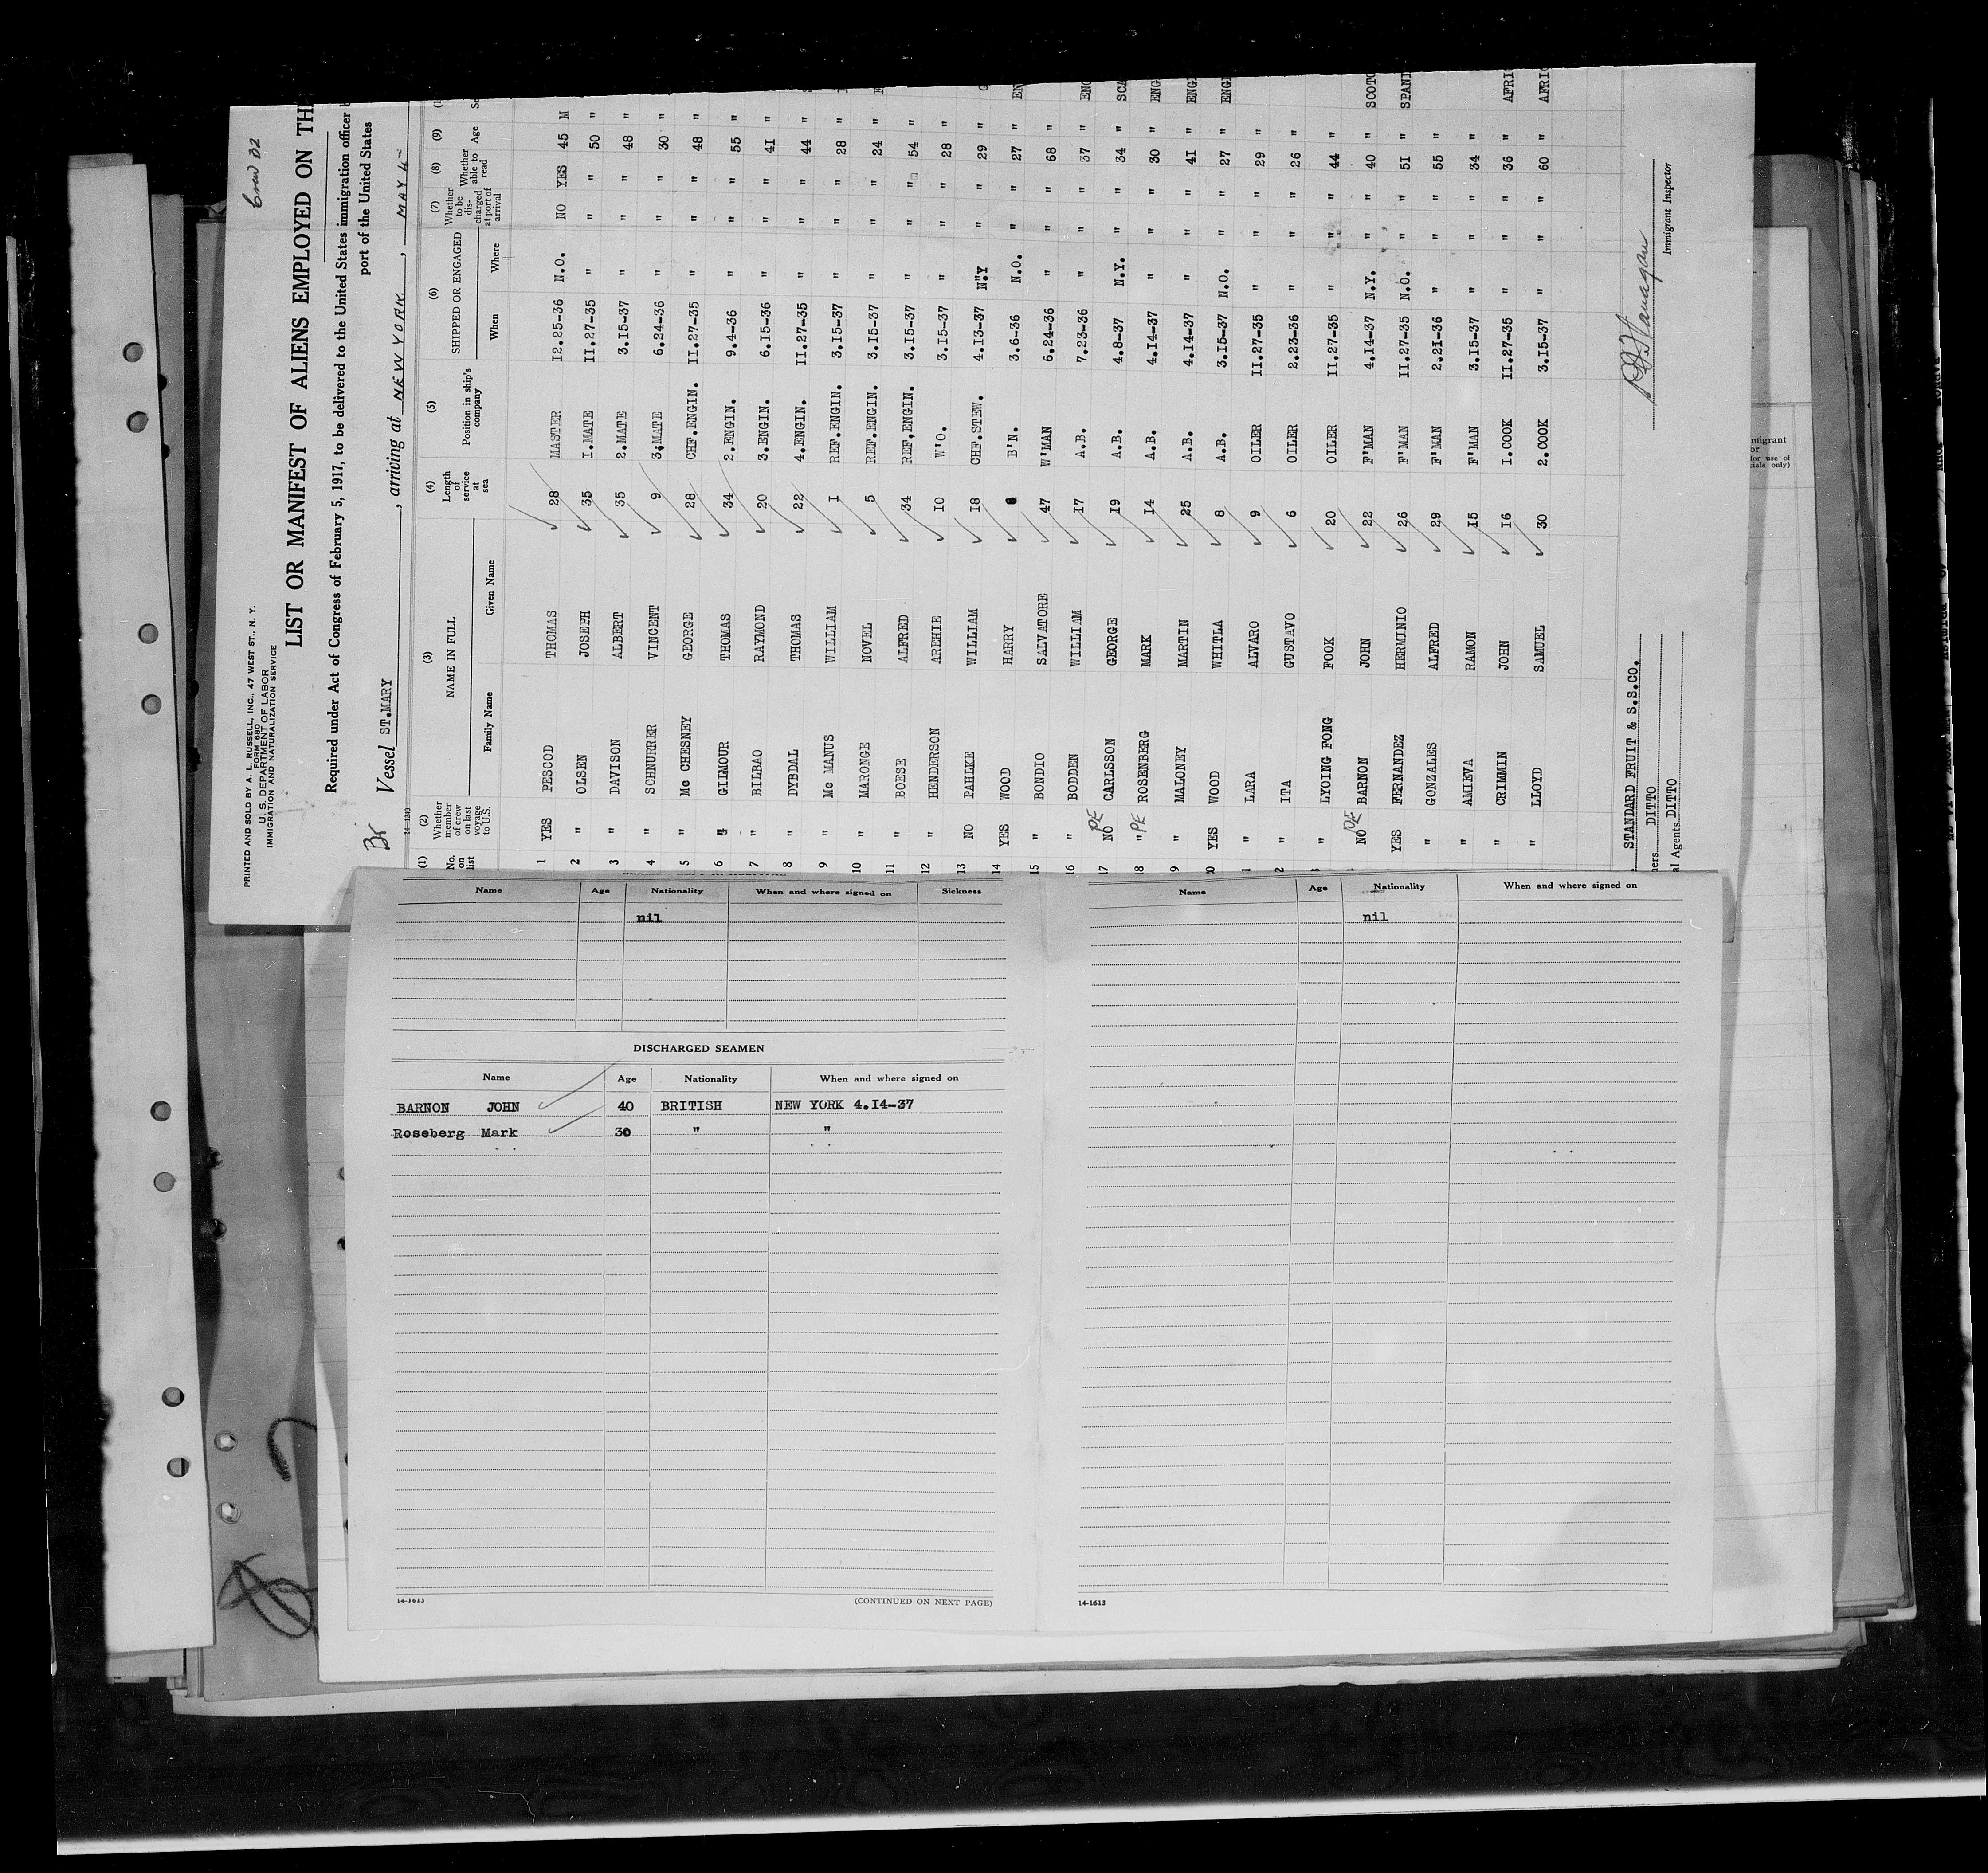 Crew B2
PRINTED AND SOLD BY A. L. RUSSELL, INC., 47 WEST ST., N. Y.
FORM 680
U. S. DEPARTMENT OF LABOR
IMMIGRATION AND NATURALIZATION SERVICE
LIST OR MANIFEST OF ALIENS EMPLOYED ON TH
Required under Act of Congress of February 5, 1917, to be delivered to the United States immigration officer
port of the United States
Br Vessel ST.MARY, arriving at NEW YORK, MAY 4
14-1240
(1) (2) (3) (4) (5) (6) (7) (8) (9)
No. on list Whether member of crew on last voyage to U.S. NAME IN FULL Family Name Given Name Length of service at sea Position in ship's company SHIPPED OR ENGAGED When Where Whether to be discharged at port of arrival Whether able to read Age Se
1 YES PESCOD THOMAS 28 MASTER I2.25-36 N.O. NO YES 45 M
2 " OLSEN JOSEPH 35 I.MATE II.27-35 " " " 50 "
3 " DAVISON ALBERT 35 2.MATE 3.I5-37 " " " 48 "
4 " SCHNURRER VINCENT 9 3.MATE 6.24-36 " " " 30 "
5 " Mc CHESNEY GEORGE 28 CHF.ENGIN. II.27-35 " " " 48 "
6 " GILMOUR THOMAS 34 2.ENGIN. 9.4-36 " " " 55 "
7 " BILBAO RAYMOND 20 3.ENGIN. 6.I5-36 " " " 4I "
8 " DYBDAL THOMAS 22 4.ENGIN. II.27-35 " " " 44 "
9 " Mc MANUS WILLIAM I REF.ENGIN. 3.I5-37 " " " 28 "
10 " MARONGE NOVEL 5 REF.ENGIN. 3.I5-37 " " " 24 "
11 " BOESE ALFRED 34 REF.ENGIN. 3.I5-37 " " " 54 "
12 " HENDERSON AREHIE 10 W'O. 3.I5-37 " " " 28 "
13 NO PAHLKE WILLIAM I8 CHF.STEW. 4.I3-37 N.Y " " 29 " G
14 YES WOOD HARRY 6 B'N. 3.6-36 N.O. " " 27 " EN
15 " BONDIO SALVATORE 47 W'MAN 6.24-36 " " " 68 "
16 " BODDEN WILLIAM I7 A.B. 7.23-36 " " " 37 " ENG
17 NO PE CARLSSON GEORGE I9 A.B. 4.8-37 N.Y. " " 34 " SCA
8 " PE ROSENBERG MARK I4 A.B. 4.I4-37 " " " 30 " ENG
9 " MALONEY MARTIN 25 A.B. 4.I4-37 " " " 4I " ENGI
0 YES WOOD WHITLA 8 A.B. 3.I5-37 N.O. " " 27 " ENGI
1 " LARA ALVARO 9 OILER II.27-35 " " " 29 "
2 " ITA GUSTAVO 6 OILER 2.23-36 " " " 26 "
" LYOING FONG FOOK 20 OILER II.27-35 " " " 44 "
NO PE BARNON JOHN 22 F'MAN 4.I4-37 N.Y. " " 40 " SCOTC
YES FERNANDEZ HERMINIO 26 F'MAN II.27-35 N.O. " " 5I " SPANI
" GONZALES ALFRED 29 F'MAN 2.2I-36 " " " 55 "
" AMIEVA RAMON I5 F'MAN 3.I5-37 " " " 34 "
" CRIMMIN JOHN I6 I.COOK II.27-35 " " " 36 " AFRIC
" LLOYD SAMUEL 30 2.COOK 3.I5-37 " " " 60 " AFRIC
STANDARD FRUIT & S.S.CO.
ners DITTO
l Agents DITTO
Immigrant Inspector
Name Age Nationality When and where signed on Sickness
nil
DISCHARGED SEAMEN
Name Age Nationality When and where signed on
BARNON JOHN 40 BRITISH NEW YORK 4.I4-37
Roseberg Mark 30 " "
14-1613
(CONTINUED ON NEXT PAGE)
Name Age Nationality When and where signed on
nil
14-1613
migrant
or
for use of
cials only)